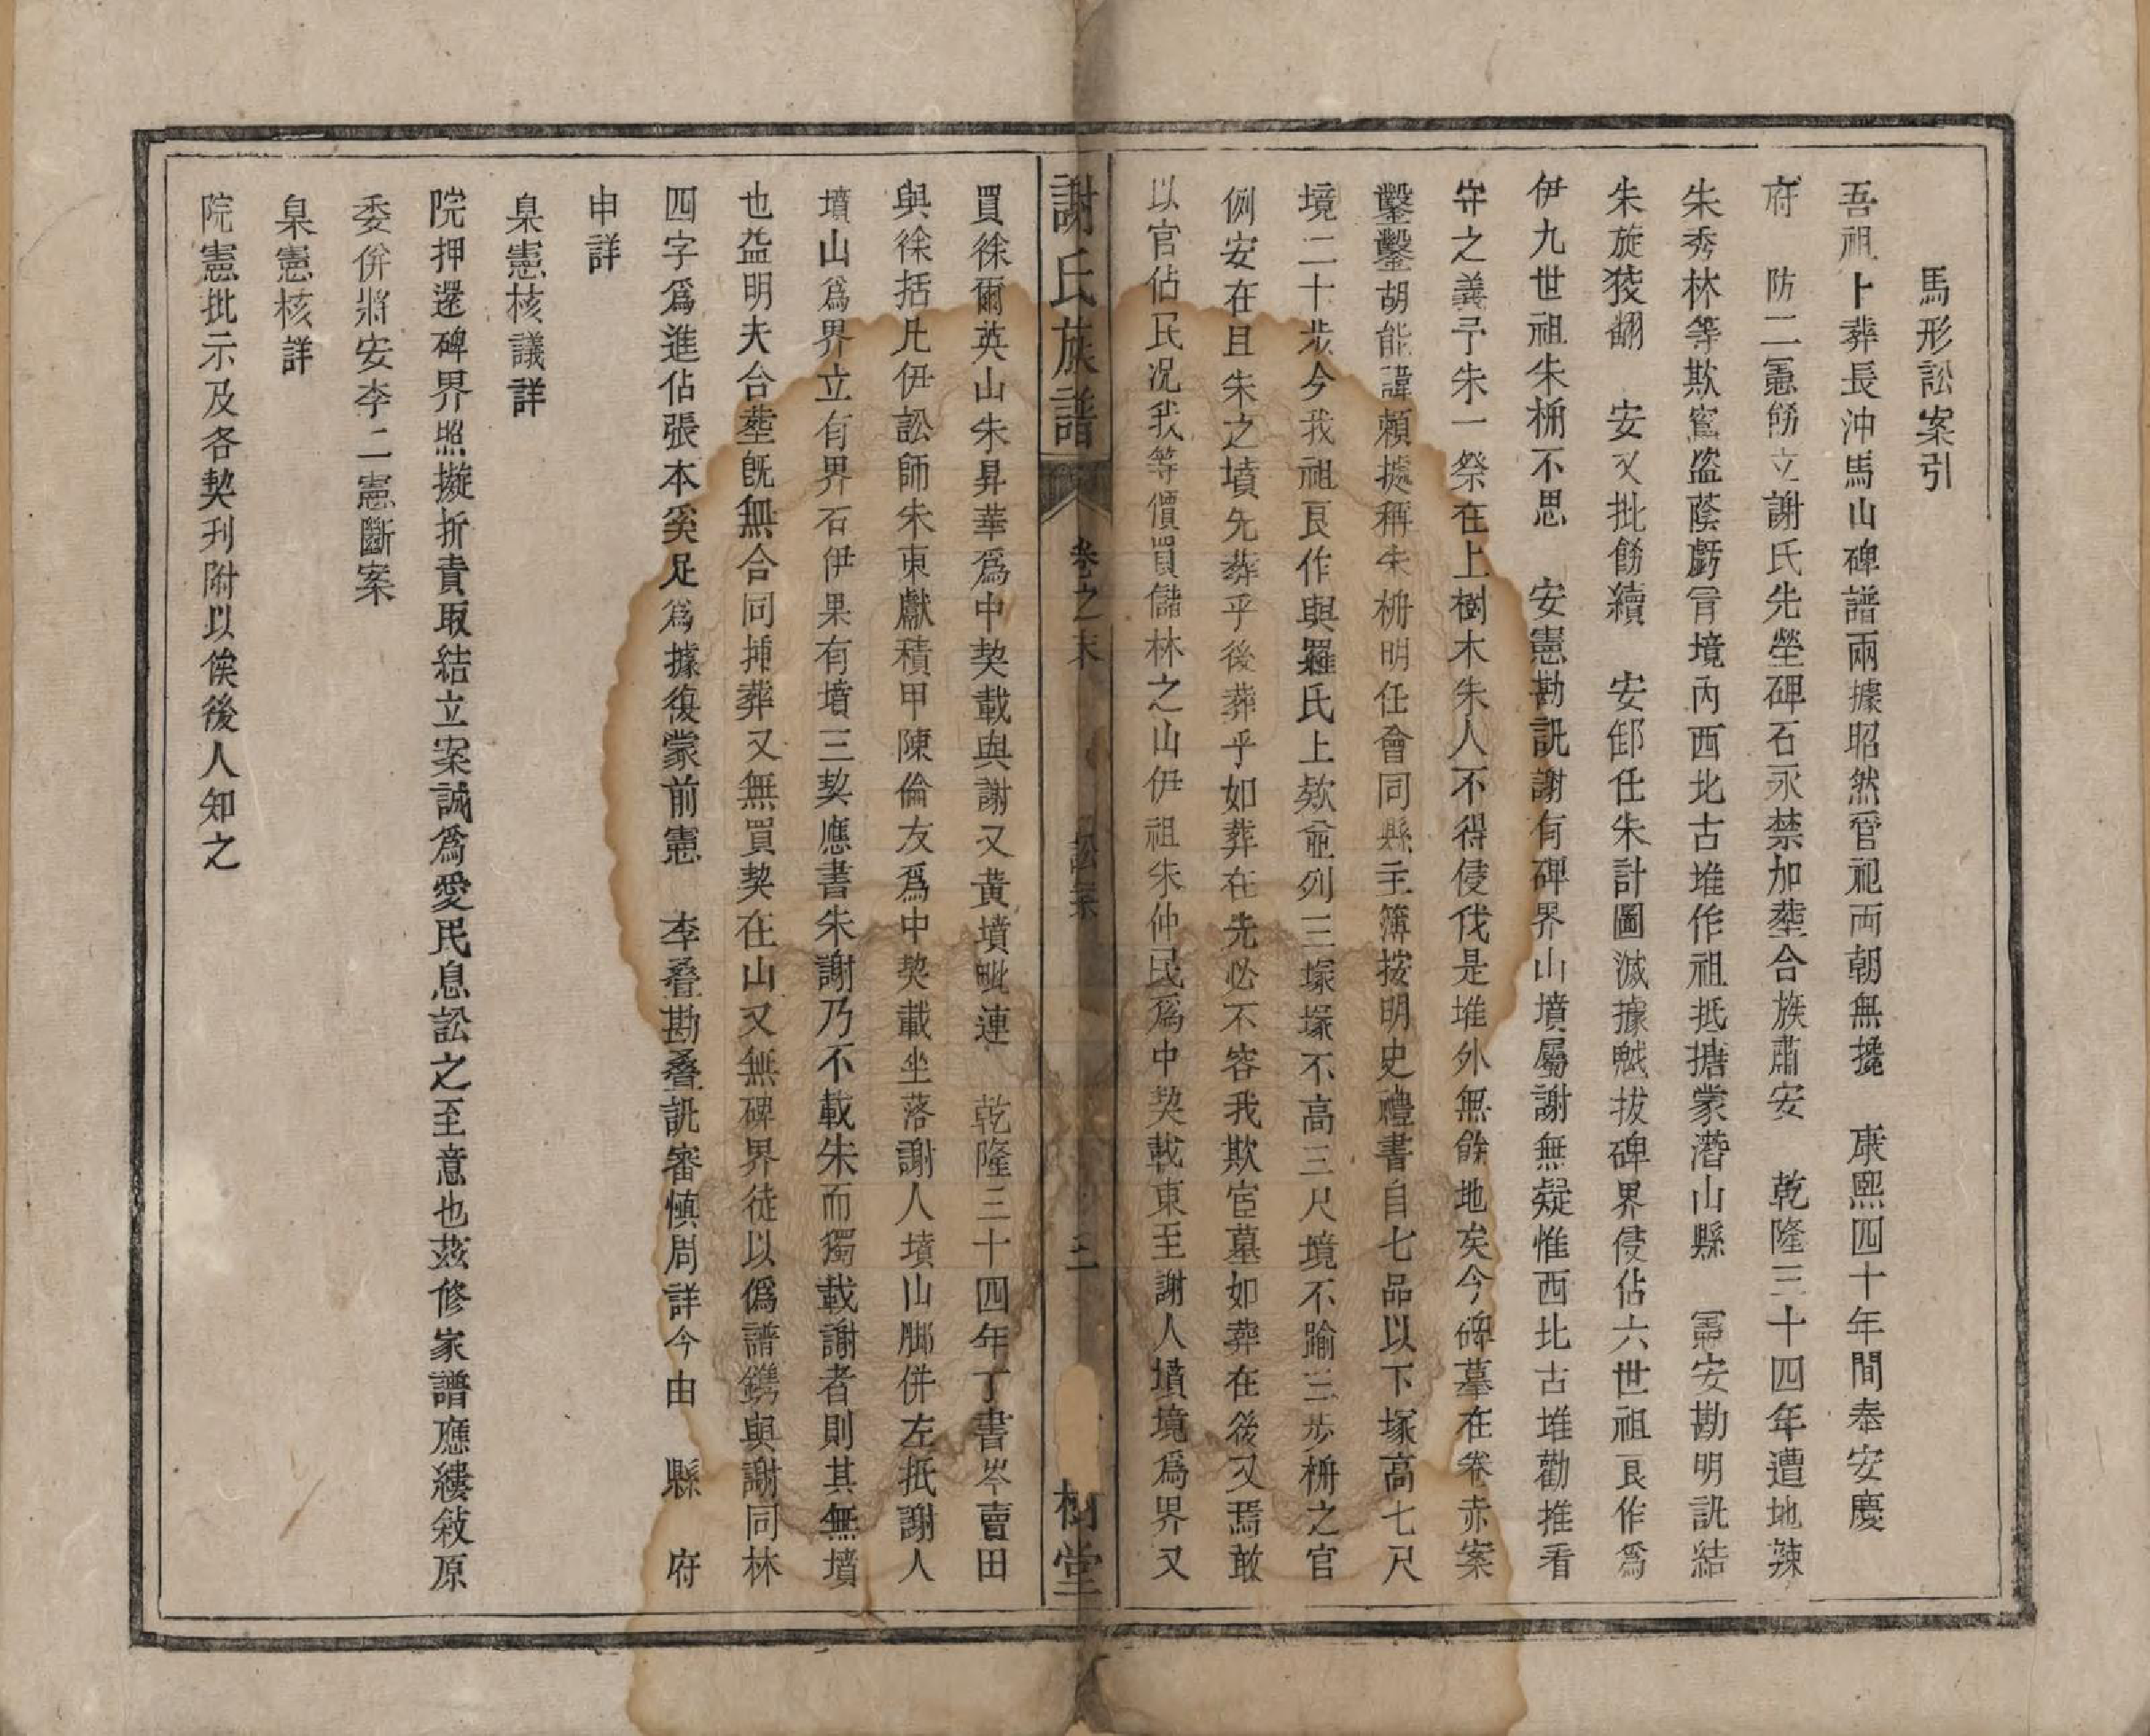 馬形訟案引
吾祖卜葬長沖馬山碑譜兩據昭然管祀兩朝無撓　康熙四十年間奉安慶
府　防二憲飭立謝氏先塋碑石永禁加塟合族肅安　乾隆三十四年遭地辣
朱秀林等欺竄盜蔭虧冐境內西北古堆作祖抵搪蒙潛山縣　憲安勘明訊結
朱旋狡翻　安又批飭續　安卸任朱計圖滅據賊拔碑界侵佔六世祖艮作爲
伊九世祖朱枬不思　安憲勘訊謝有碑界山墳屬謝無疑惟西北古堆勸推看
守之義予朱一祭在上樹木朱人不得侵伐是堆外無餘地矣今碑墓在卷赤案
鑿鑿胡能諱賴據稱朱枬明任會同縣主簿按明史禮書自七品以下塚高七尺
境二十步今我祖艮作與羅氏上欵並列三塚塚不高三尺境不踰三步枬之官
例安在且朱之墳先葬乎後葬乎如葬在先必不容我欺宦墓如葬在後又焉敢
以官佔民况我等價買儲林之山伊祖朱仲民爲中契載東至謝人墳境爲界又
謝氏族譜　卷之末　訟案　三　樹堂
買徐爾英山朱昇華爲中契載與謝又黃墳毗連　乾隆三十四年丁書岑賣田
與徐括凡伊訟師朱東獻積甲陳倫友爲中契載坐落謝人墳山脚併左抵謝人
墳山爲界立有界石伊果有墳三契應書朱謝乃不載朱而獨載謝者則其無墳
也益明夫合塟旣無合同揷葬又無買契在山又無碑界徒以僞譜鐫與謝同林
四字爲進佔張本奚足爲據復蒙前憲　李叠勘叠訊審愼周詳今由　縣　府
申詳
臬憲核議詳
院押還碑界照擬折責取結立案誠爲愛民息訟之至意也兹修家譜應縷敍原
委併將安李二憲斷案
臬憲核詳
院憲批示及各契刋附以俟後人知之